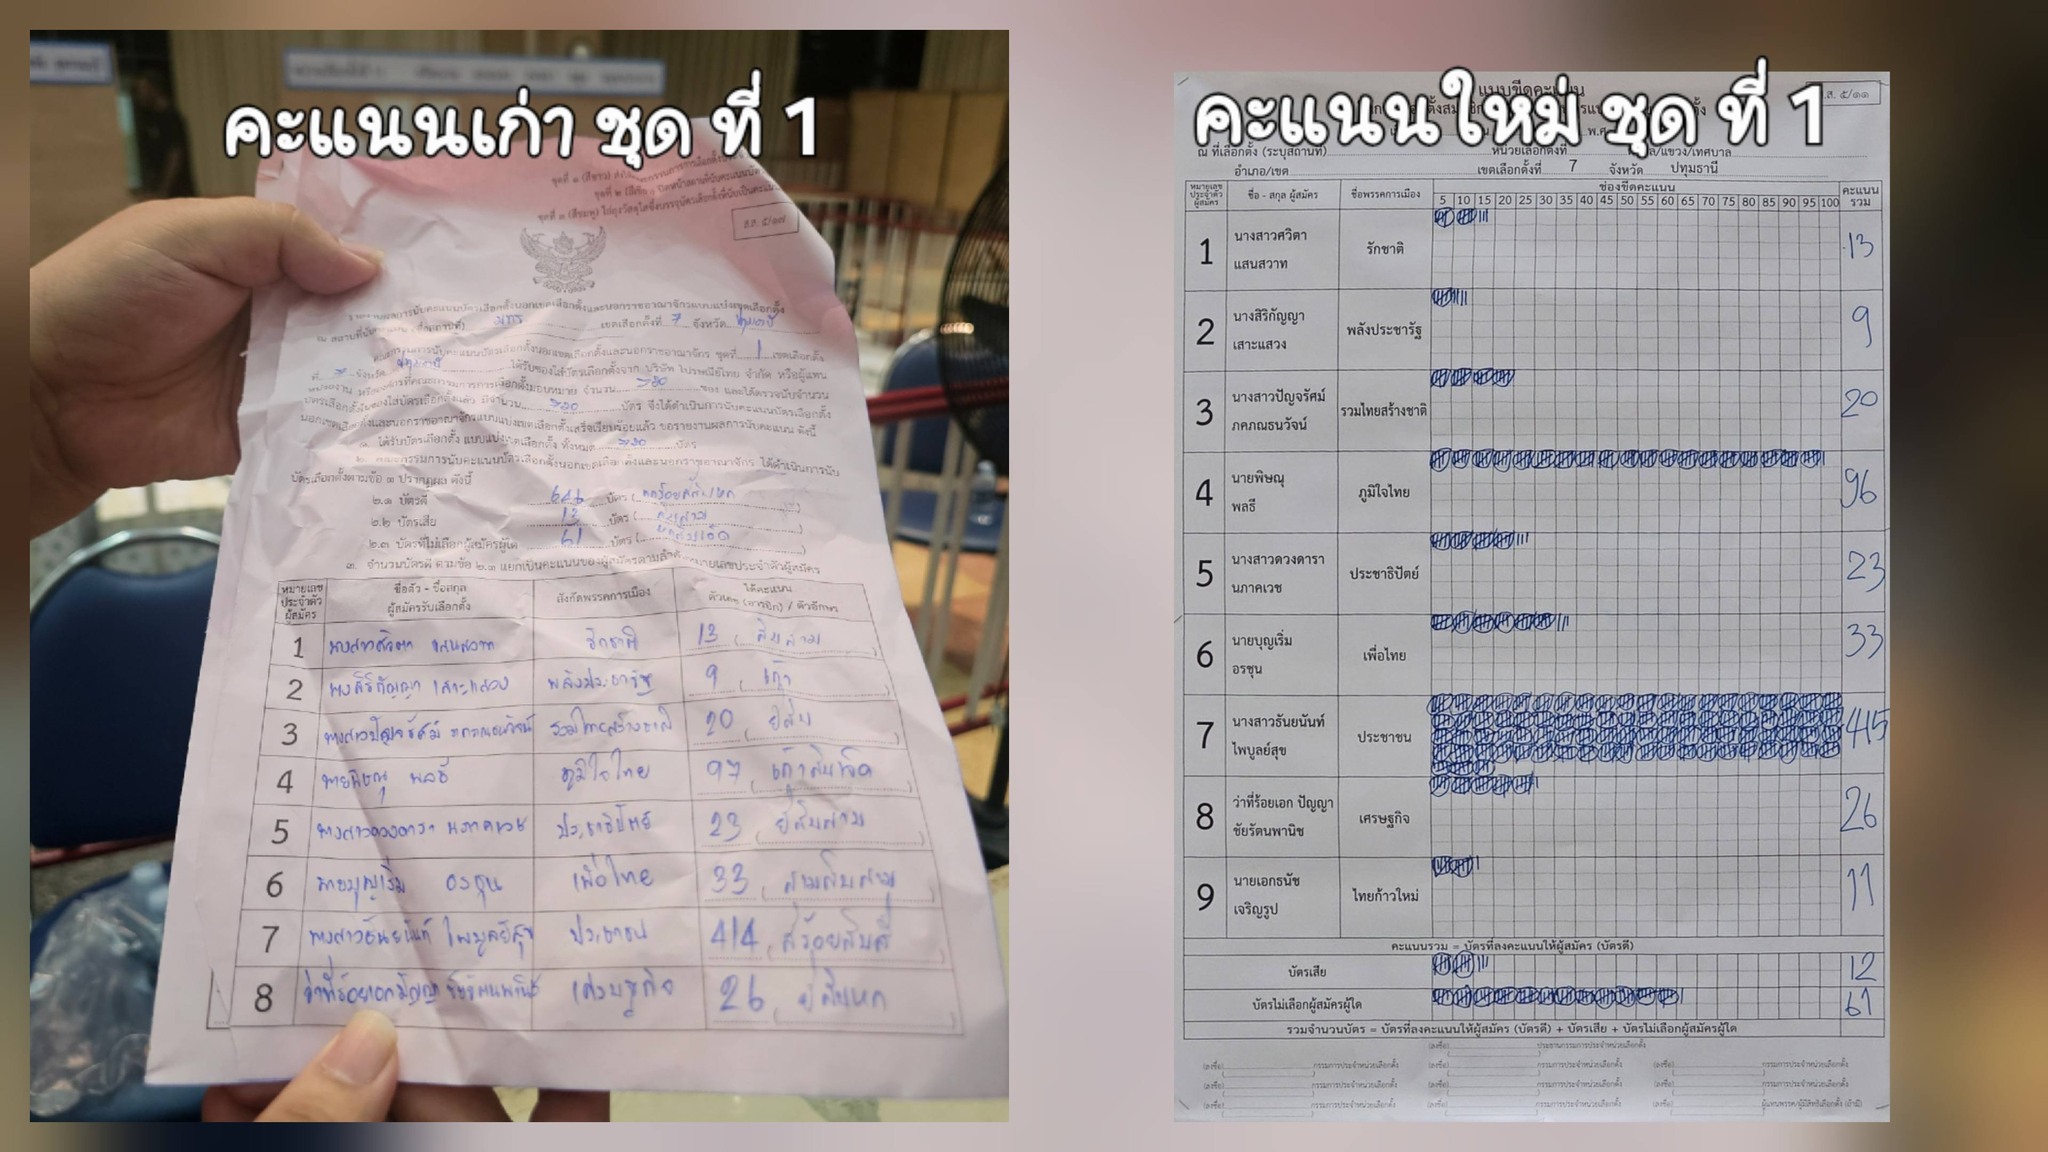 คะแนนเก่า ชุด ที่ 1
ส.ส. ๕/๑๗
รายงานผลการนับคะแนนบัตรเลือกตั้งนอกเขตเลือกตั้งและนอกราชอาณาจักรแบบแบ่งเขตเลือกตั้ง
เขตเลือกตั้งที่ 7 จังหวัด
คณะกรรมการนับคะแนนบัตรเลือกตั้งนอกเขตเลือกตั้งและนอกราชอาณาจักร ชุดที่ 1 เขตเลือกตั้ง
ที่ 7 จังหวัด ได้รับซองใส่บัตรเลือกตั้งจาก บริษัท ไปรษณีย์ไทย จำกัด หรือผู้แทน
บัตรเลือกตั้งตามข้อ ๑ ปรากฏผล ดังนี้
๒.๑ บัตรดี 646 บัตร
๒.๒ บัตรเสีย 13 บัตร
๒.๓ บัตรที่ไม่เลือกผู้สมัครผู้ใด 61 บัตร
๓. จำนวนบัตรดี ตามข้อ ๒.๑ แยกเป็นคะแนนของผู้สมัครตามลำดับหมายเลขประจำตัวผู้สมัคร
หมายเลขประจำตัวผู้สมัคร ชื่อตัว - ชื่อสกุล ผู้สมัครรับเลือกตั้ง สังกัดพรรคการเมือง ได้คะแนน ตัวเลข (อารบิก) / ตัวอักษร
1 นางสาวศวิตา แสนสวาท รักชาติ 13 สิบสาม
2 นางสิริกัญญา เสาะแสวง พลังประชารัฐ 9 เก้า
3 นางสาวปัญจรัศม์ ภคภณธนวัจน์ รวมไทยสร้างชาติ 20 ยี่สิบ
4 นายพิษณุ พลธี ภูมิใจไทย 97 เก้าสิบเจ็ด
5 นางสาวดวงดารา นภาคเวช ประชาธิปัตย์ 23 ยี่สิบสาม
6 นายบุญเริ่ม อรชุน เพื่อไทย 33 สามสิบสาม
7 นางสาวธันยนันท์ ไพบูลย์สุข ประชาชน 414 สี่ร้อยสิบสี่
8 ว่าที่ร้อยเอก ปัญญา ชัยรัตนพานิช เศรษฐกิจ 26 ยี่สิบหก
คะแนนใหม่ ชุด ที่ 1
แบบขีดคะแนน
ส.ส. ๕/๑๑
ณ ที่เลือกตั้ง (ระบุสถานที่) หน่วยเลือกตั้งที่ ตำบล/แขวง/เทศบาล
อำเภอ/เขต เขตเลือกตั้งที่ 7 จังหวัด ปทุมธานี
หมายเลขประจำตัวผู้สมัคร ชื่อ - สกุล ผู้สมัคร ชื่อพรรคการเมือง ช่องขีดคะแนน คะแนนรวม
5 10 15 20 25 30 35 40 45 50 55 60 65 70 75 80 85 90 95 100
1 นางสาวศวิตา แสนสวาท รักชาติ 13
2 นางสิริกัญญา เสาะแสวง พลังประชารัฐ 9
3 นางสาวปัญจรัศม์ ภคภณธนวัจน์ รวมไทยสร้างชาติ 20
4 นายพิษณุ พลธี ภูมิใจไทย 96
5 นางสาวดวงดารา นภาคเวช ประชาธิปัตย์ 23
6 นายบุญเริ่ม อรชุน เพื่อไทย 33
7 นางสาวธันยนันท์ ไพบูลย์สุข ประชาชน 415
8 ว่าที่ร้อยเอก ปัญญา ชัยรัตนพานิช เศรษฐกิจ 26
9 นายเอกธนัช เจริญรูป ไทยก้าวใหม่ 11
คะแนนรวม = บัตรที่ลงคะแนนให้ผู้สมัคร (บัตรดี)
บัตรเสีย 12
บัตรไม่เลือกผู้สมัครผู้ใด 61
รวมจำนวนบัตร = บัตรที่ลงคะแนนให้ผู้สมัคร (บัตรดี) + บัตรเสีย + บัตรไม่เลือกผู้สมัครผู้ใด
(ลงชื่อ) ประธานกรรมการประจำหน่วยเลือกตั้ง
(ลงชื่อ) กรรมการประจำหน่วยเลือกตั้ง (ลงชื่อ) กรรมการประจำหน่วยเลือกตั้ง (ลงชื่อ) กรรมการประจำหน่วยเลือกตั้ง
(ลงชื่อ) กรรมการประจำหน่วยเลือกตั้ง (ลงชื่อ) กรรมการประจำหน่วยเลือกตั้ง (ลงชื่อ) กรรมการประจำหน่วยเลือกตั้ง
(ลงชื่อ) กรรมการประจำหน่วยเลือกตั้ง (ลงชื่อ) กรรมการประจำหน่วยเลือกตั้ง (ลงชื่อ)